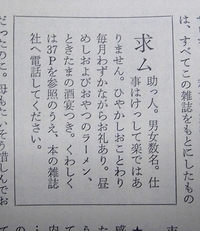 は、すべてこの雑誌をもとにしたもの
求ム
助っ人。男女数名。仕
事はけっして楽ではあ
りません。ひやかしおことわり
毎月わずかながらお礼あり。昼
めしおよびおやつのラーメン、
ときたまの酒宴つき。くわしく
は37Pを参照のうえ、本の雑誌
社へ電話してください。
だったのに。母もたいそう惜しんでお